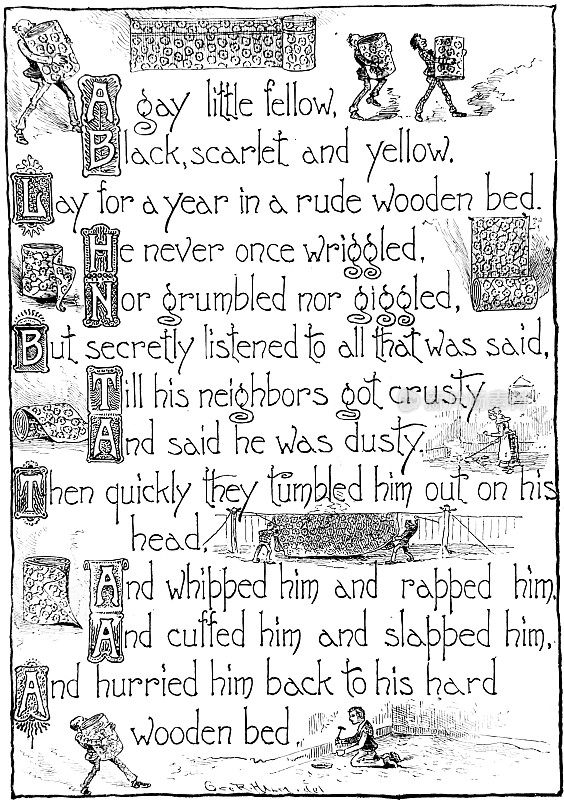 A gay little fellow,
Black, scarlet and yellow.
Lay for a year in a rude wooden bed.
He never once wriggled,
Nor grumbled nor giggled,
But secretly listened to all that was said,
Till his neighbors got crusty
And said he was dusty.
Then quickly they tumbled him out on his
head,
And whipped him and rapped him,
And cuffed him and slapped him,
And hurried him back to his hard
wooden bed.